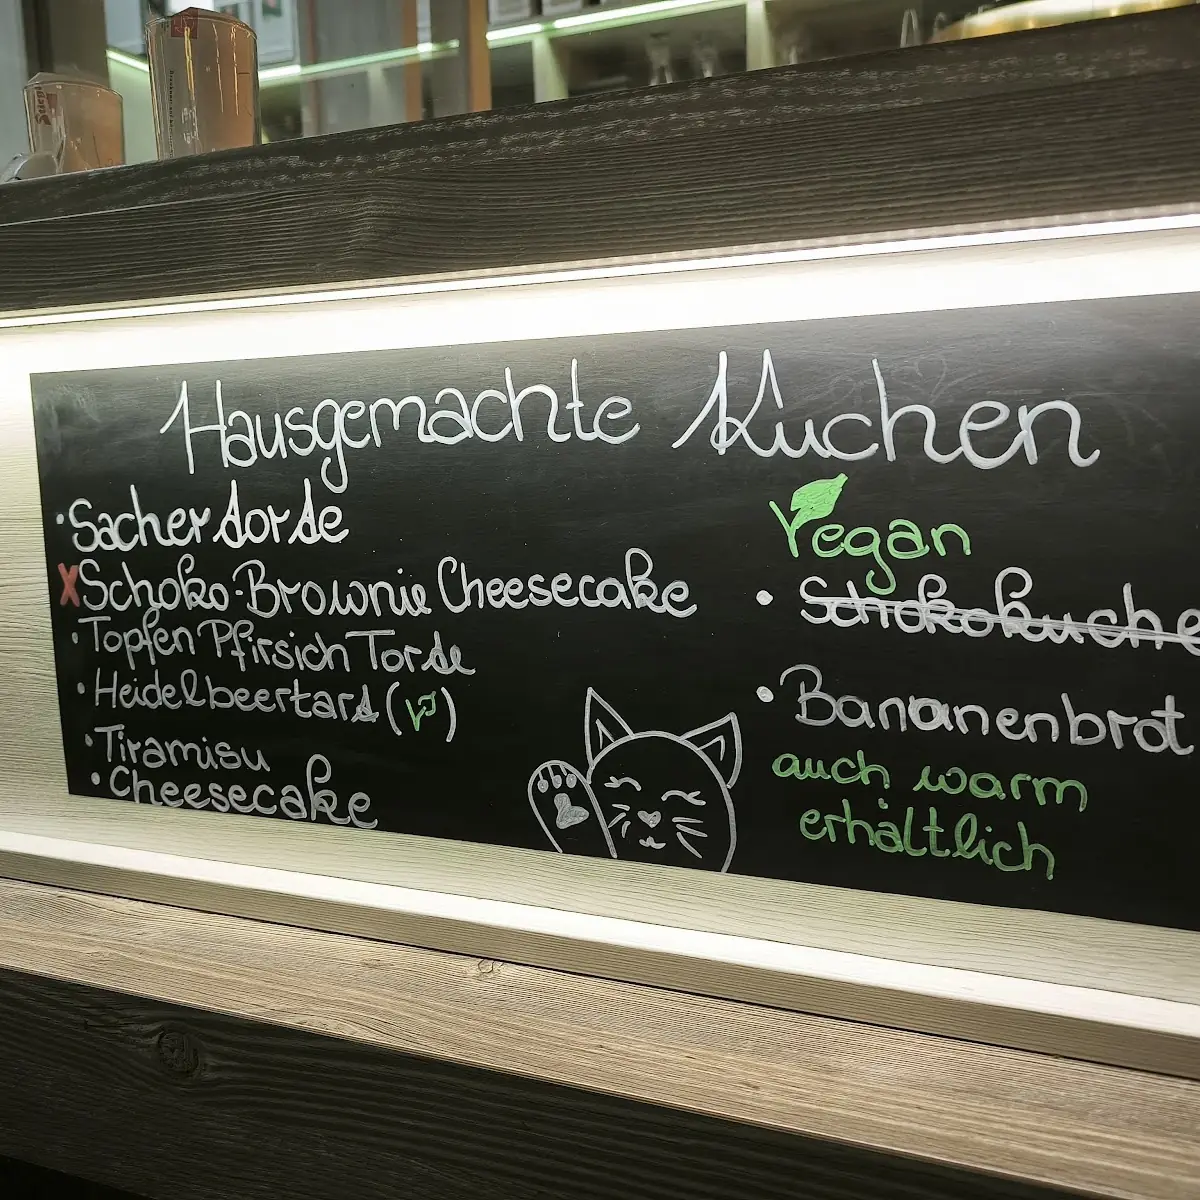 Hausgemachte Kuchen
· Sachertorte
x Schoko-Brownie Cheesecake
· Topfen Pfirsich Torte
· Heidelbeertart (V)
· Tiramisu
· Cheesecake
Vegan
· Schokokuche
· Bananenbrot
auch warm
erhältlich